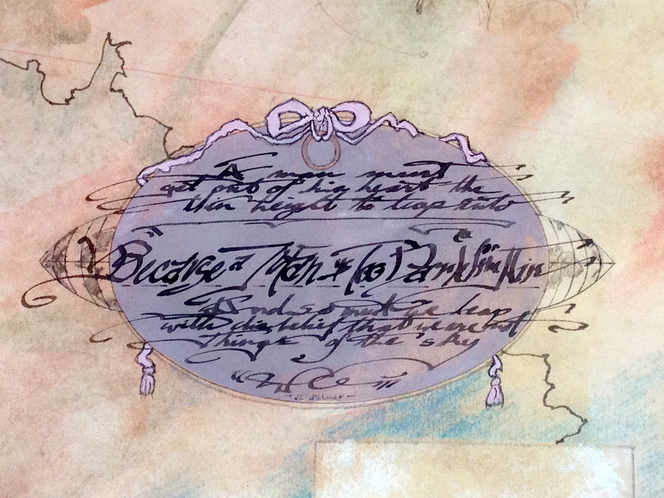 A man must
get out of his heart the
thin height to leap into
"Because a Man is (as)
And so must we leap
with disbelief that we are not
Things of the sky